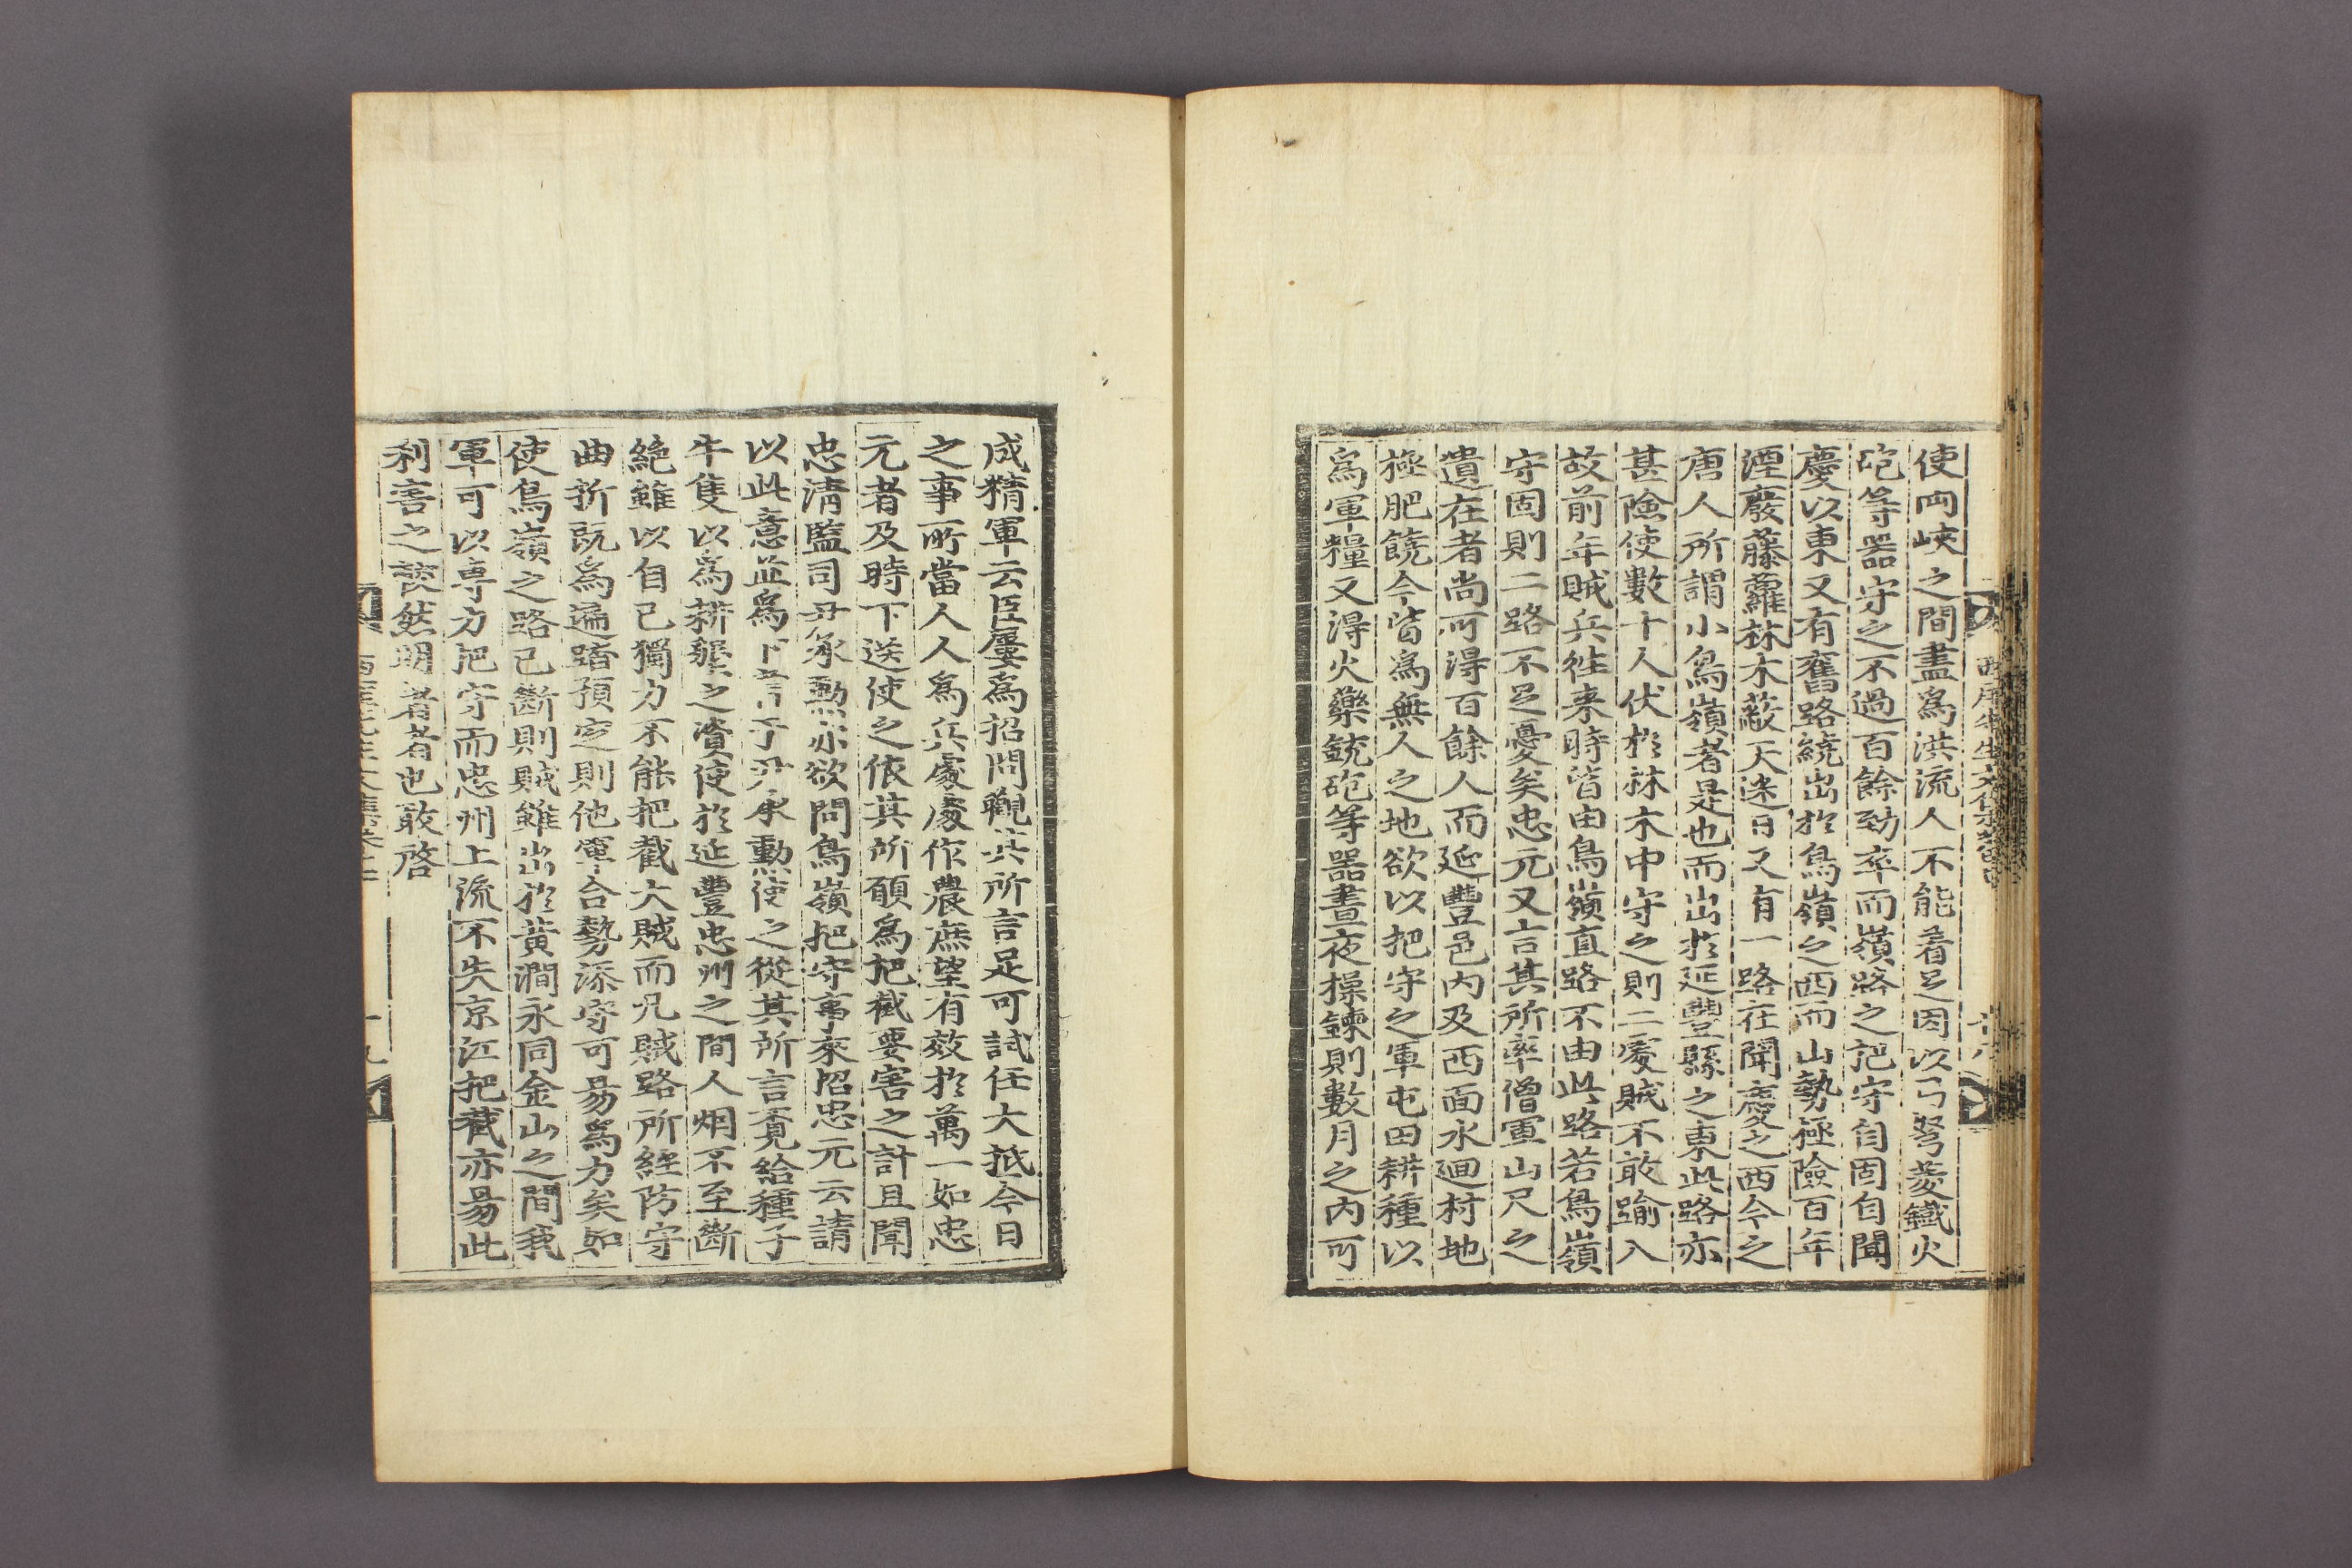 使両峽之間盡爲洪流人不能着足因以弓弩菱鐵火
砲等器守之不過百餘勁卒而嶺路之把守自固自聞
慶以東又有舊路繞出於鳥嶺之西而山勢極險百年
湮廢藤蘿林木蔽天迷日又有一路在聞慶之西今之
唐人所謂小鳥嶺者是也而出於延豐縣之東此路亦
甚險使數十人伏於林木中守之則二處賊不敢踰入
故前年賊兵徃來時皆由鳥嶺直路不由此路若鳥嶺
守固則二路不足憂矣忠元又言其所率僧軍山尺之
遺在者尚可得百餘人而延豐邑內及西面水迴村地
極肥饒今皆爲無人之地欲以把守之軍屯田耕種以
爲軍糧又得火藥銃砲等器晝夜操鍊則數月之內可
成精軍云臣屢爲招問觀其所言足可試任大抵今日
之事所當人人爲兵處處作農庶望有效於萬一如忠
元者及時下送使之依其所願爲把截要害之計且聞
忠淸監司尹承勳亦欲問鳥嶺把守事來招忠元云請
以此意並爲下書于尹承勳使之從其所言覔給種子
牛隻以爲耕墾之資使於延豐忠州之間人烟不至斷
絶雖以自己獨力不能把截大賊而凡賊路所經防守
曲折旣爲遍踏預定則他軍合勢添守可易爲力矣如
使鳥嶺之路已斷則賊雖出於黃澗永同金山之間我
軍可以專力把守而忠州上流不失京江把截亦易此
利害之談然明著者也敢啓